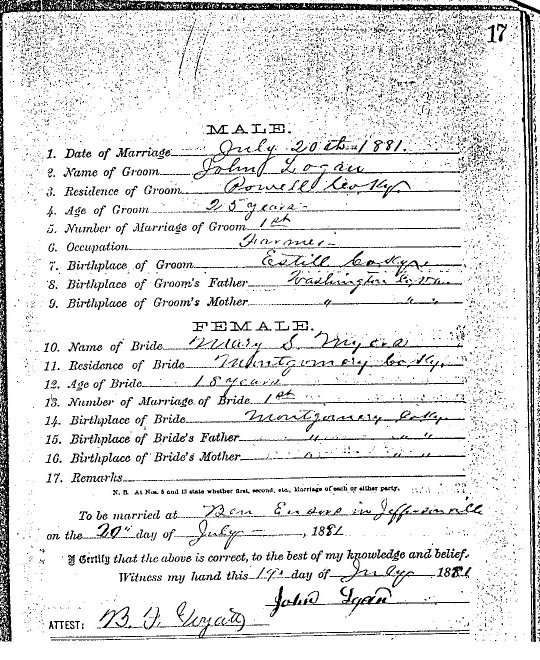 17
MALE.
1. Date of Marriage July 20th 1881.
2. Name of Groom John Logan
3. Residence of Groom Powell Co Ky.
4. Age of Groom 25 years
5. Number of Marriage of Groom 1st
6. Occupation Farmer
7. Birthplace of Groom Estill Co Ky.
8. Birthplace of Groom's Father Washington Co
9. Birthplace of Groom's Mother " " "
FEMALE.
10. Name of Bride Mary S. Myers
11. Residence of Bride Montgomery Co Ky.
12. Age of Bride 18 years
13. Number of Marriage of Bride 1st
14. Birthplace of Bride Montgomery Co Ky
15. Birthplace of Bride's Father " " "
16. Birthplace of Bride's Mother " " "
17. Remarks
N. B. At Nos. 5 and 13 state whether first, second, etc., Marriage of each or either party.
To be married at Ben in Jeffersonville
on the 20" day of July, 1881
I Certify that the above is correct, to the best of my knowledge and belief.
Witness my hand this 19" day of July 1881
John Logan
ATTEST: B. F. Wyatt